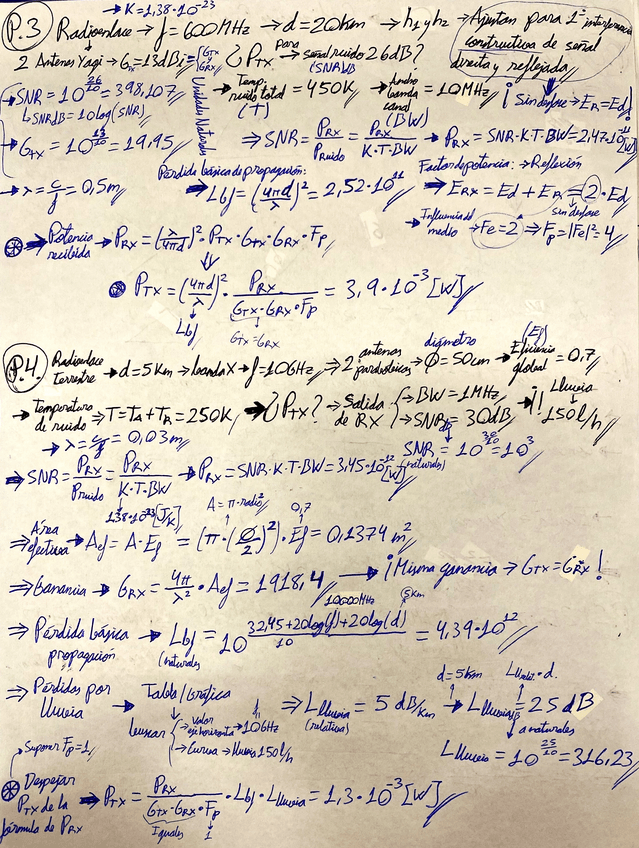 → K=1,38·10^-23
P.3 Radioenlace → f=600MHz → d=20km → h1 y h2 → Ajustan para 1ª interferencia constructiva de señal directa y reflejada
2 Antenas Yagi → Gtx=13dBi {Gtx Grx ¿PTX? Para señal ruido 26dB? (SNR)dB
→ SNR=10^(26/10)=398,107
↳ SNRdB=10log(SNR)
Unidades Naturales
→ Temp. ruido total (T) = 450K → Ancho banda canal (BW) = 10MHz
¡Sin desfase → ER=Ed!
→ GTX=10^(13/10)=19,95
⇒ SNR = PRX/Pruido = PRX/(K·T·BW) → PRX=SNR·K·T·BW=2,47·10^-11 [W]
→ λ=c/f=0,5m
Pérdida básica de propagación:
⇒ Lbf=(4πd/λ)^2=2,52·10^11
Factor de potencia: → Reflexión
⇒ ERX=Ed+ER=2·Ed
sin desfase
→ Influencia del medio → Fe=2 ⇒ Fp=|Fe|^2=4
⊛ ⇒ Potencia recibida → PRX=(λ/4πd)^2·PTX·GTX·GRX·Fp
⊛ PTX=(4πd/λ)^2·PRX/(GTX·GRX·Fp)=3,9·10^-3 [W]
Lbf
GTX=GRX
P.4. Radioenlace terrestre → d=5Km → banda X → f=10GHz → 2 antenas parabólicas → diámetro Φ=50cm → Eficiencia global (Ef) = 0,7
→ Temperatura de ruido ⇒ T=TA+TR=250K → ¿PTX? → Salida de RX { BW=1MHz SNRdB=30dB → ¡! Lluvia 150l/h
→ λ=c/f=0,03m
SNR(naturales)=10^(30/10)=10^3
⇒ SNR=PRX/Pruido=PRX/(K·T·BW) → PRX=SNR·K·T·BW=3,45·10^-12 [W]
1,38·10^-23 [J/K]
A=π·radio^2
0,7
⇒ Área efectiva → Aef=A·Ef=(π·(Φ/2)^2)·Ef=0,1374 m^2
⇒ Ganancia → GRX=4π/λ^2·Aef=1918,4 → ¡Misma ganancia → GTX=GRX!
10000MHz
5Km
⇒ Pérdida básica propagación → Lbf(naturales)=10^((32,45+20log(f)+20log(d))/10)=4,39·10^12
⇒ Pérdidas por lluvia → Tabla/Gráfica
buscar { → valor eje horizonta → 10GHz → Curva → lluvia 150l/h
⇒ Llluvia(relativas)=5 dB/Km → LlluviadB=25dB
d=5km
a naturales
Llluvia=10^(25/10)=316,23
→ Suponer Fp=1
⊛ Despejar PTX de la fórmula de PRX ⇒ PTX=PRX/(GTX·GRX·Fp)·Lbf·Llluvia=1,3·10^-3 [W]
Iguales
1